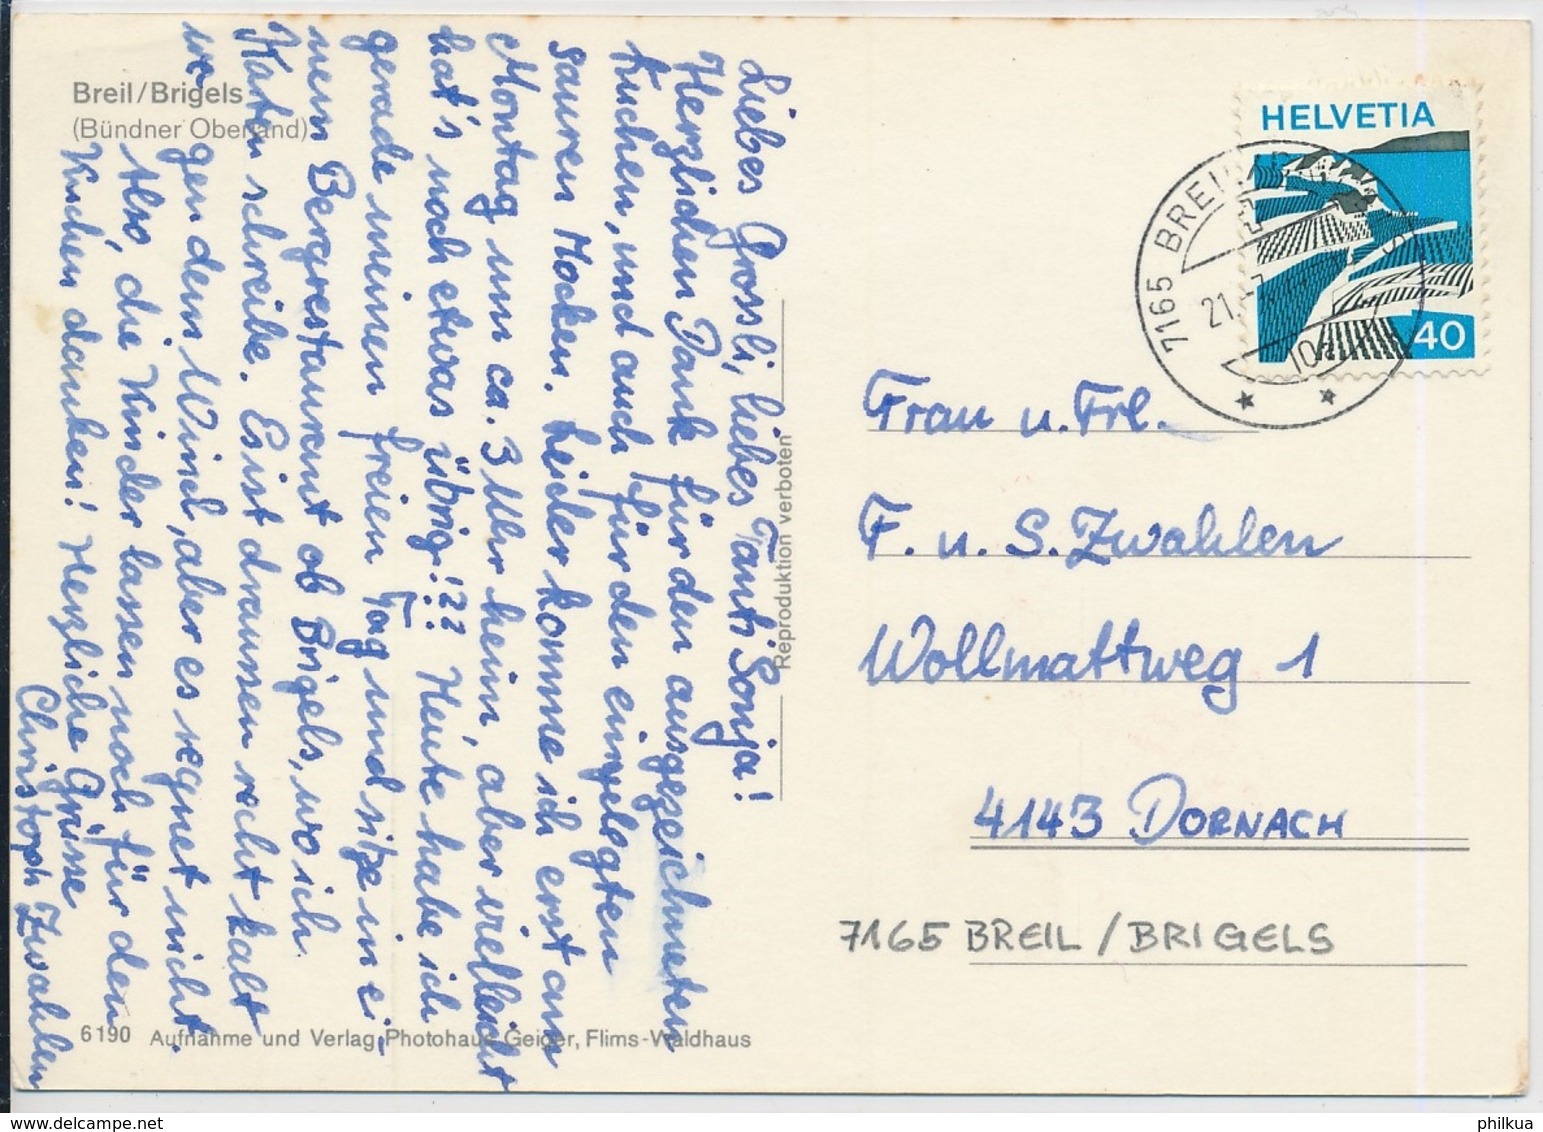 Breil/Brigels
(Bündner Oberland)
Liebes Grossli, liebes Tanti Sonja!
Herzlichen Dank für den ausgezeichneten
Kuchen, und auch für den eingelegten
sauren Mocken. Leider komme ich erst am
Montag um ca. 3 Uhr heim, aber vielleicht
hat's noch etwas übrig!?? Heute habe ich
gerade meinen freien Tag und sitze in ei-
nem Bergrestaurant ob Brigels, wo ich
Karten schreibe. Es ist draussen recht kalt
wegen dem Wind, aber es regnet nicht.
Also, die Kinder lassen noch für den
Kuchen danken! Herzliche Grüsse
Christoph Zwahlen
6190 Aufnahme und Verlag Photohaus Geiger, Flims-Waldhaus
Reproduktion verboten
HELVETIA
40
7165 BREIL
21
10
Frau u. Frl.
F. u. S. Zwahlen
Wollmattweg 1
4143 DORNACH
7165 BREIL/BRIGELS
philkua.com